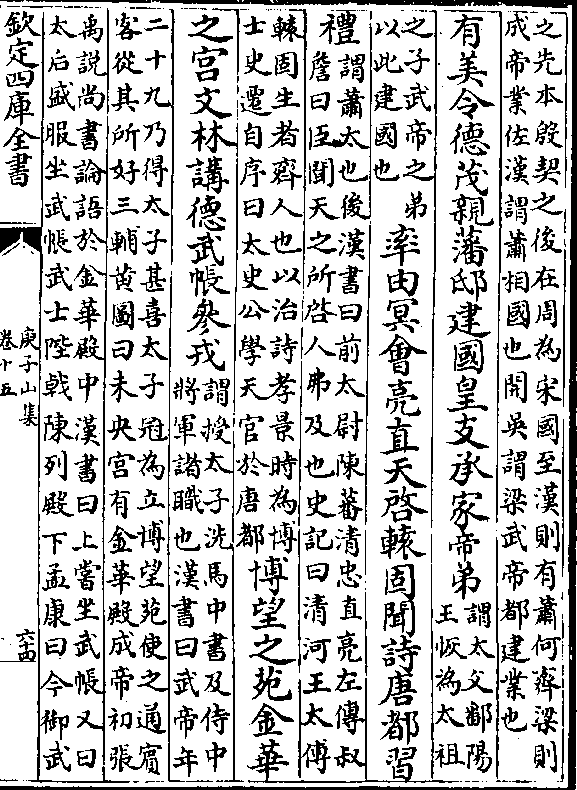 之先本殷契之後在周為宋國至漢則有蕭何齊梁則
成帝業佐漢謂蕭相國也開吳謂梁武帝都建業也
有美令德茂親藩邸建國皇支承家帝弟謂太父鄱陽
王恢為太祖
之子武帝之弟
以此建國也
率由冥會亮直天啓轅固聞詩唐都習
禮謂蕭太也後漢書曰前太尉陳蕃清忠直亮左傳叔
詹曰臣聞天之所啓人弗及也史記曰清河王太傅
轅固生者齊人也以治詩孝景時為博
士史遷自序曰太史公學天官於唐都
博望之苑金華
之宮文林講德武帳參戎謂授太子洗馬中書及侍中
將軍諸職也漢書曰武帝年
二十九乃得太子甚喜太子冠為立博望苑使之通賓
客從其所好三輔黃圖曰未央宮有金華殿成帝初張
禹說尚書論語於金華殿中漢書曰上嘗坐武帳又曰
太后盛服坐武帳武士陛戟陳列殿下孟康曰今御武
欽定四庫全書
庾子山集
卷十五
六十四